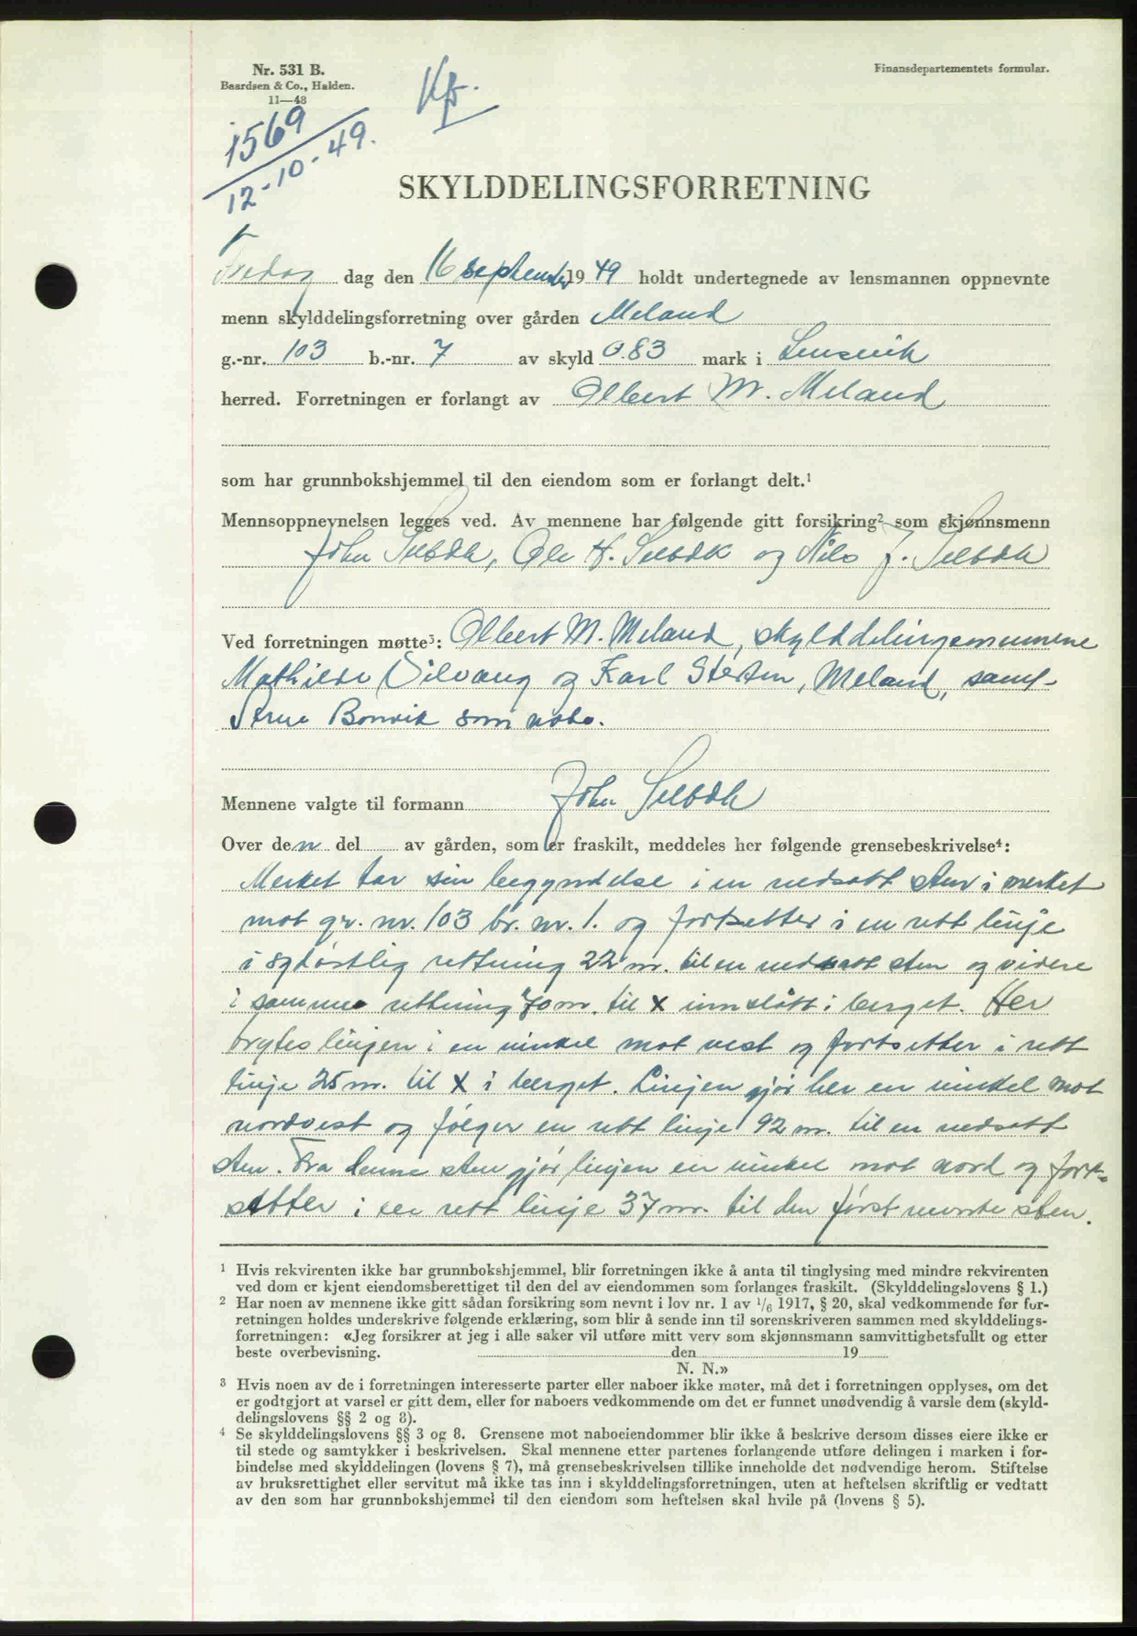 Nr. 531 B.
Baardsen & Co., Halden.
11—48
Finansdepartementets formular.
1569
12-10-49.
SKYLDDELINGSFORRETNING
Fredag dag den 16 september 1949 holdt undertegnede av lensmannen oppnevnte
menn skylddelingsforretning over gården Meland
g.-nr. 103 b.-nr. 7 av skyld 0.83 mark i Lensvik
herred. Forretningen er forlangt av Albert M. Meland
som har grunnbokshjemmel til den eiendom som er forlangt delt.¹
Mennsoppnevnelsen legges ved. Av mennene har følgende gitt forsikring² som skjønnsmenn
John Selbæk, Ole H. Selbæk og Nils J. Selbæk
Ved forretningen møtte³: Albert M. Meland, skylddelingsmennene
Mathilde Silvang og Karl Steren, Meland, samt
Bonvik som nabo.
Mennene valgte til formann John Selbæk
Over den del av gården, som er fraskilt, meddeles her følgende grensebeskrivelse⁴:
Merket tar sin begyndelse i en nedsatt sten i merket
mot gr. nr. 103 br. nr. 1. og fortsetter i en rett linje
i sydøstlig rettning 22 m. til en nedsatt sten og videre
i samme rettning 70 m. til X innslått i berget. Her
brytes linjen i en vinkel mot vest og fortsetter i rett
linje 25 m. til X i berget. Linjen gjør her en vinkel mot
nordvest og følger en rett linje 92 m. til en nedsatt
sten. Fra denne sten gjør linjen en vinkel mot nord og fort-
setter i en rett linje 37 m. til den først nevnte sten.
¹ Hvis rekvirenten ikke har grunnbokshjemmel, blir forretningen ikke å anta til tinglysing med mindre rekvirenten
ved dom er kjent eiendomsberettiget til den del av eiendommen som forlanges fraskilt. (Skylddelingslovens § 1.)
² Har noen av mennene ikke gitt sådan forsikring som nevnt i lov nr. 1 av ¹/₆ 1917, § 20, skal vedkommende før for-
retningen holdes underskrive følgende erklæring, som blir å sende inn til sorenskriveren sammen med skylddelings-
forretningen: «Jeg forsikrer at jeg i alle saker vil utføre mitt verv som skjønnsmann samvittighetsfullt og etter
beste overbevisning. den 19
N. N.»
³ Hvis noen av de i forretningen interesserte parter eller naboer ikke møter, må det i forretningen opplyses, om det
er godtgjort at varsel er gitt dem, eller for naboers vedkommende om det er funnet unødvendig å varsle dem (skyld-
delingslovens §§ 2 og 8).
⁴ Se skylddelingslovens §§ 3 og 8. Grensene mot naboeiendommer blir ikke å beskrive dersom disses eiere ikke er
til stede og samtykker i beskrivelsen. Skal mennene etter partenes forlangende utføre delingen i marken i for-
bindelse med skylddelingen (lovens § 7), må grensebeskrivelsen tillike inneholde det nødvendige herom. Stiftelse
av bruksrettighet eller servitut må ikke tas inn i skylddelingsforretningen, uten at heftelsen skriftlig er vedtatt
av den som har grunnbokshjemmel til den eiendom som heftelsen skal hvile på (lovens § 5).